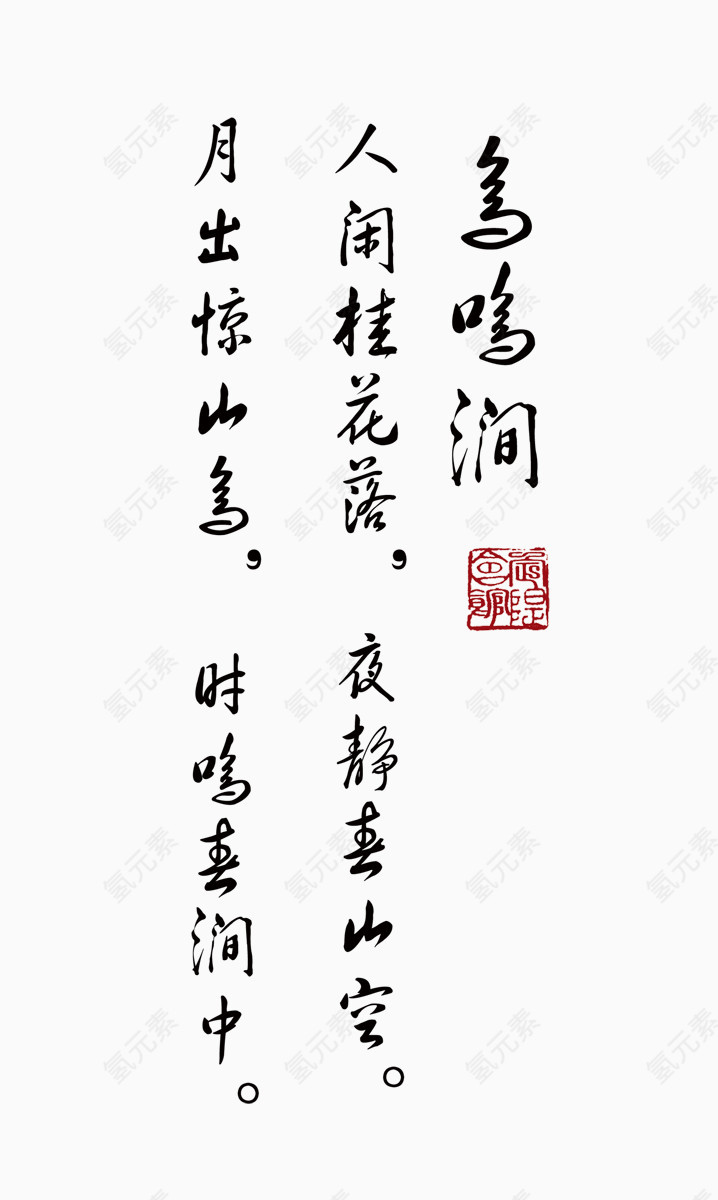 鸟鸣涧
人闲桂花落，夜静春山空。
月出惊山鸟，时鸣春涧中。
氢元素